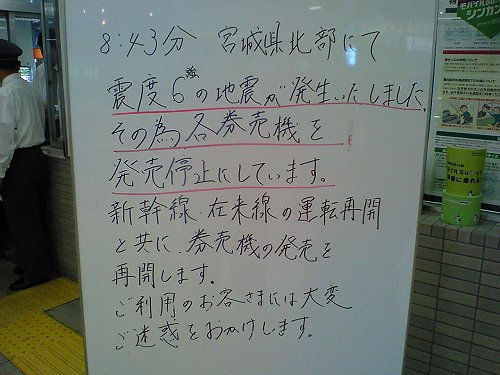 8:43分 宮城県北部にて
震度6強の地震が発生いたしました。
その為、各券売機を
発売停止にしています。
新幹線・在来線の運転再開
と共に、券売機の発売を
再開します。
ご利用のお客さまには大変
ご迷惑をおかけします。